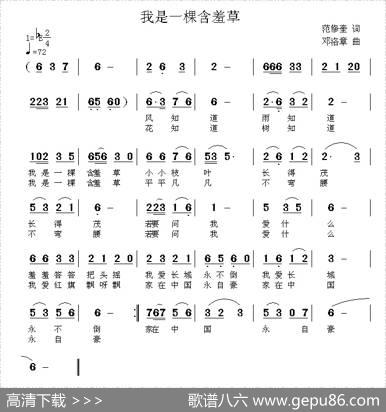 我是一棵含羞草
1=♭E 2/4
♩=72
范修奎 词
邓洛章 曲
( 6 3 7 | 6 - | 2 6 3 | 6 - | 666 33 |
223 21 | 65 60 ) | 6·3 7 6 | 6 - | 2·6 3 2 | 3 - |
风 知 道 雨 知 道
花 知 道 树 知 道
102 35 | 656 30 | 6·3 7 6 | 53 5· | 3 6 1 | 2· 3 |
我是一棵 含羞草 小小枝叶 长得茂
我是一棵 含羞草 平平凡凡 不弯腰
5 3 2 1 | 6 - | 223 1 6 | 1 - | 3 5 6 | 6 - |
长 得 茂 若要问 我 爱什么
不 弯 腰 若要问 我 爱什么
6 6 3 3 | 2 1 2 3 | 6 2 1 6 | 5 6 6 0 | 3 6 1 | 2 - |
羞羞答答 把头摇 我爱长城 永不倒 我爱长城
我爱红旗 飘呀飘 家在中国 永自豪 家在中国
5 3 2 1 | 6 - :| 767 5 6 | 3 - | 3 5 6 | 6 - |
永 不 倒 家在中 国 永自豪
永 自 豪
6 - ‖
高清下载 >>>
歌谱八六 www.gepu86.com